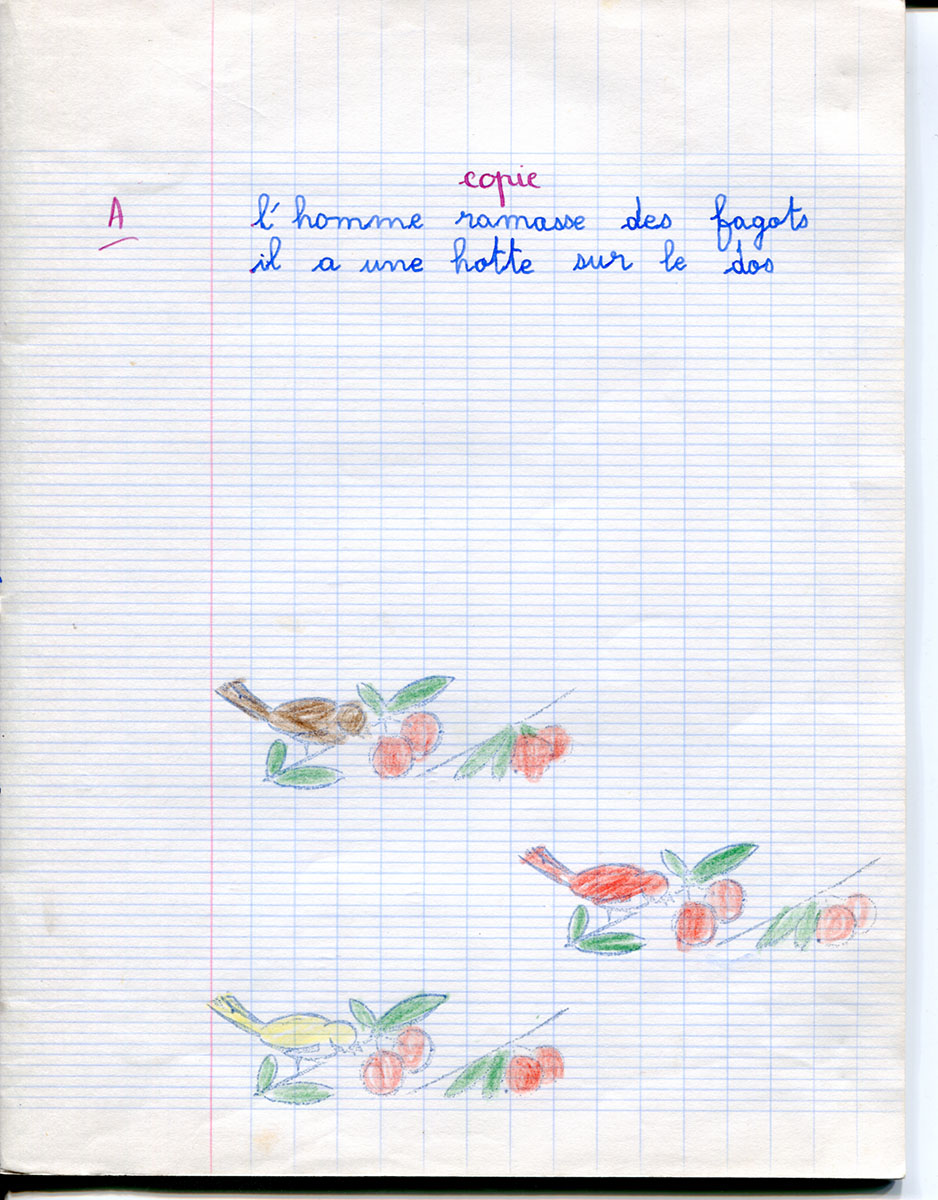 copie
A
l'homme ramasse des fagots
il a une hotte sur le dos